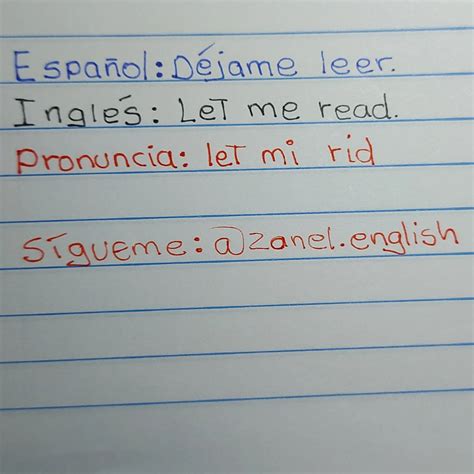 Español: Déjame leer.
Inglés: Let me read.
Pronuncia: let mi rid
Sígueme: @zanel.english